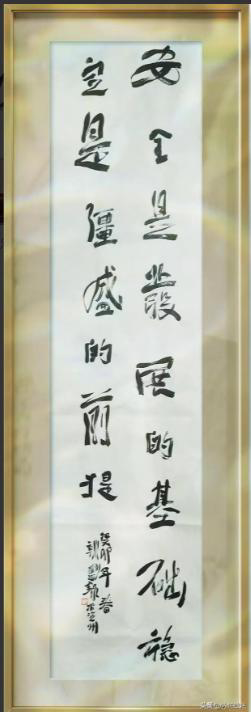 安全是發展的基础稳
定是彊盛的前提
癸卯年春